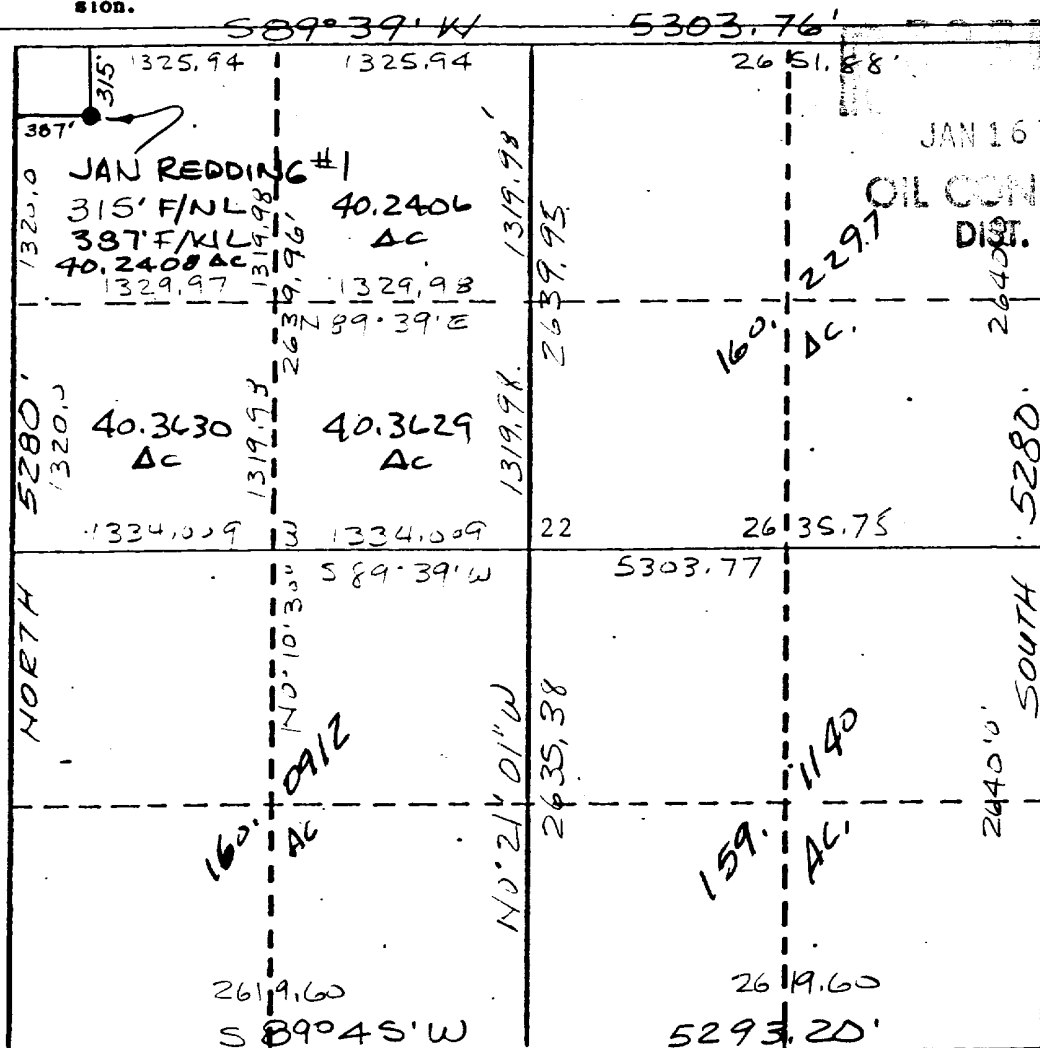 sion.
S89°39'W 5303.76'
1325.94 1325.94 2651.88'
315'
387'
JAN 16
OIL CON
DIST.
JAN REDDING #1
315' F/NL
387' F/WL
40.2408 Ac
1320.0
1319.98
40.2406
Ac
1319.98'
2639.96'
2639.95
160.2297
Ac.
1329.97 1329.98
N89°39'E
5280'
1320.0
40.3630
Ac
1319.93
40.3629
Ac
1319.98
5280.
1334.009 1334.009 22 2635.75
S89°39'W 5303.77
NORTH
N0°10'30"
N0°21'01"W
2635.38
SOUTH
2640.0'
160.0912
Ac
159.1140
Ac.
2619.60 2619.60
S89°45'W 5293.20'